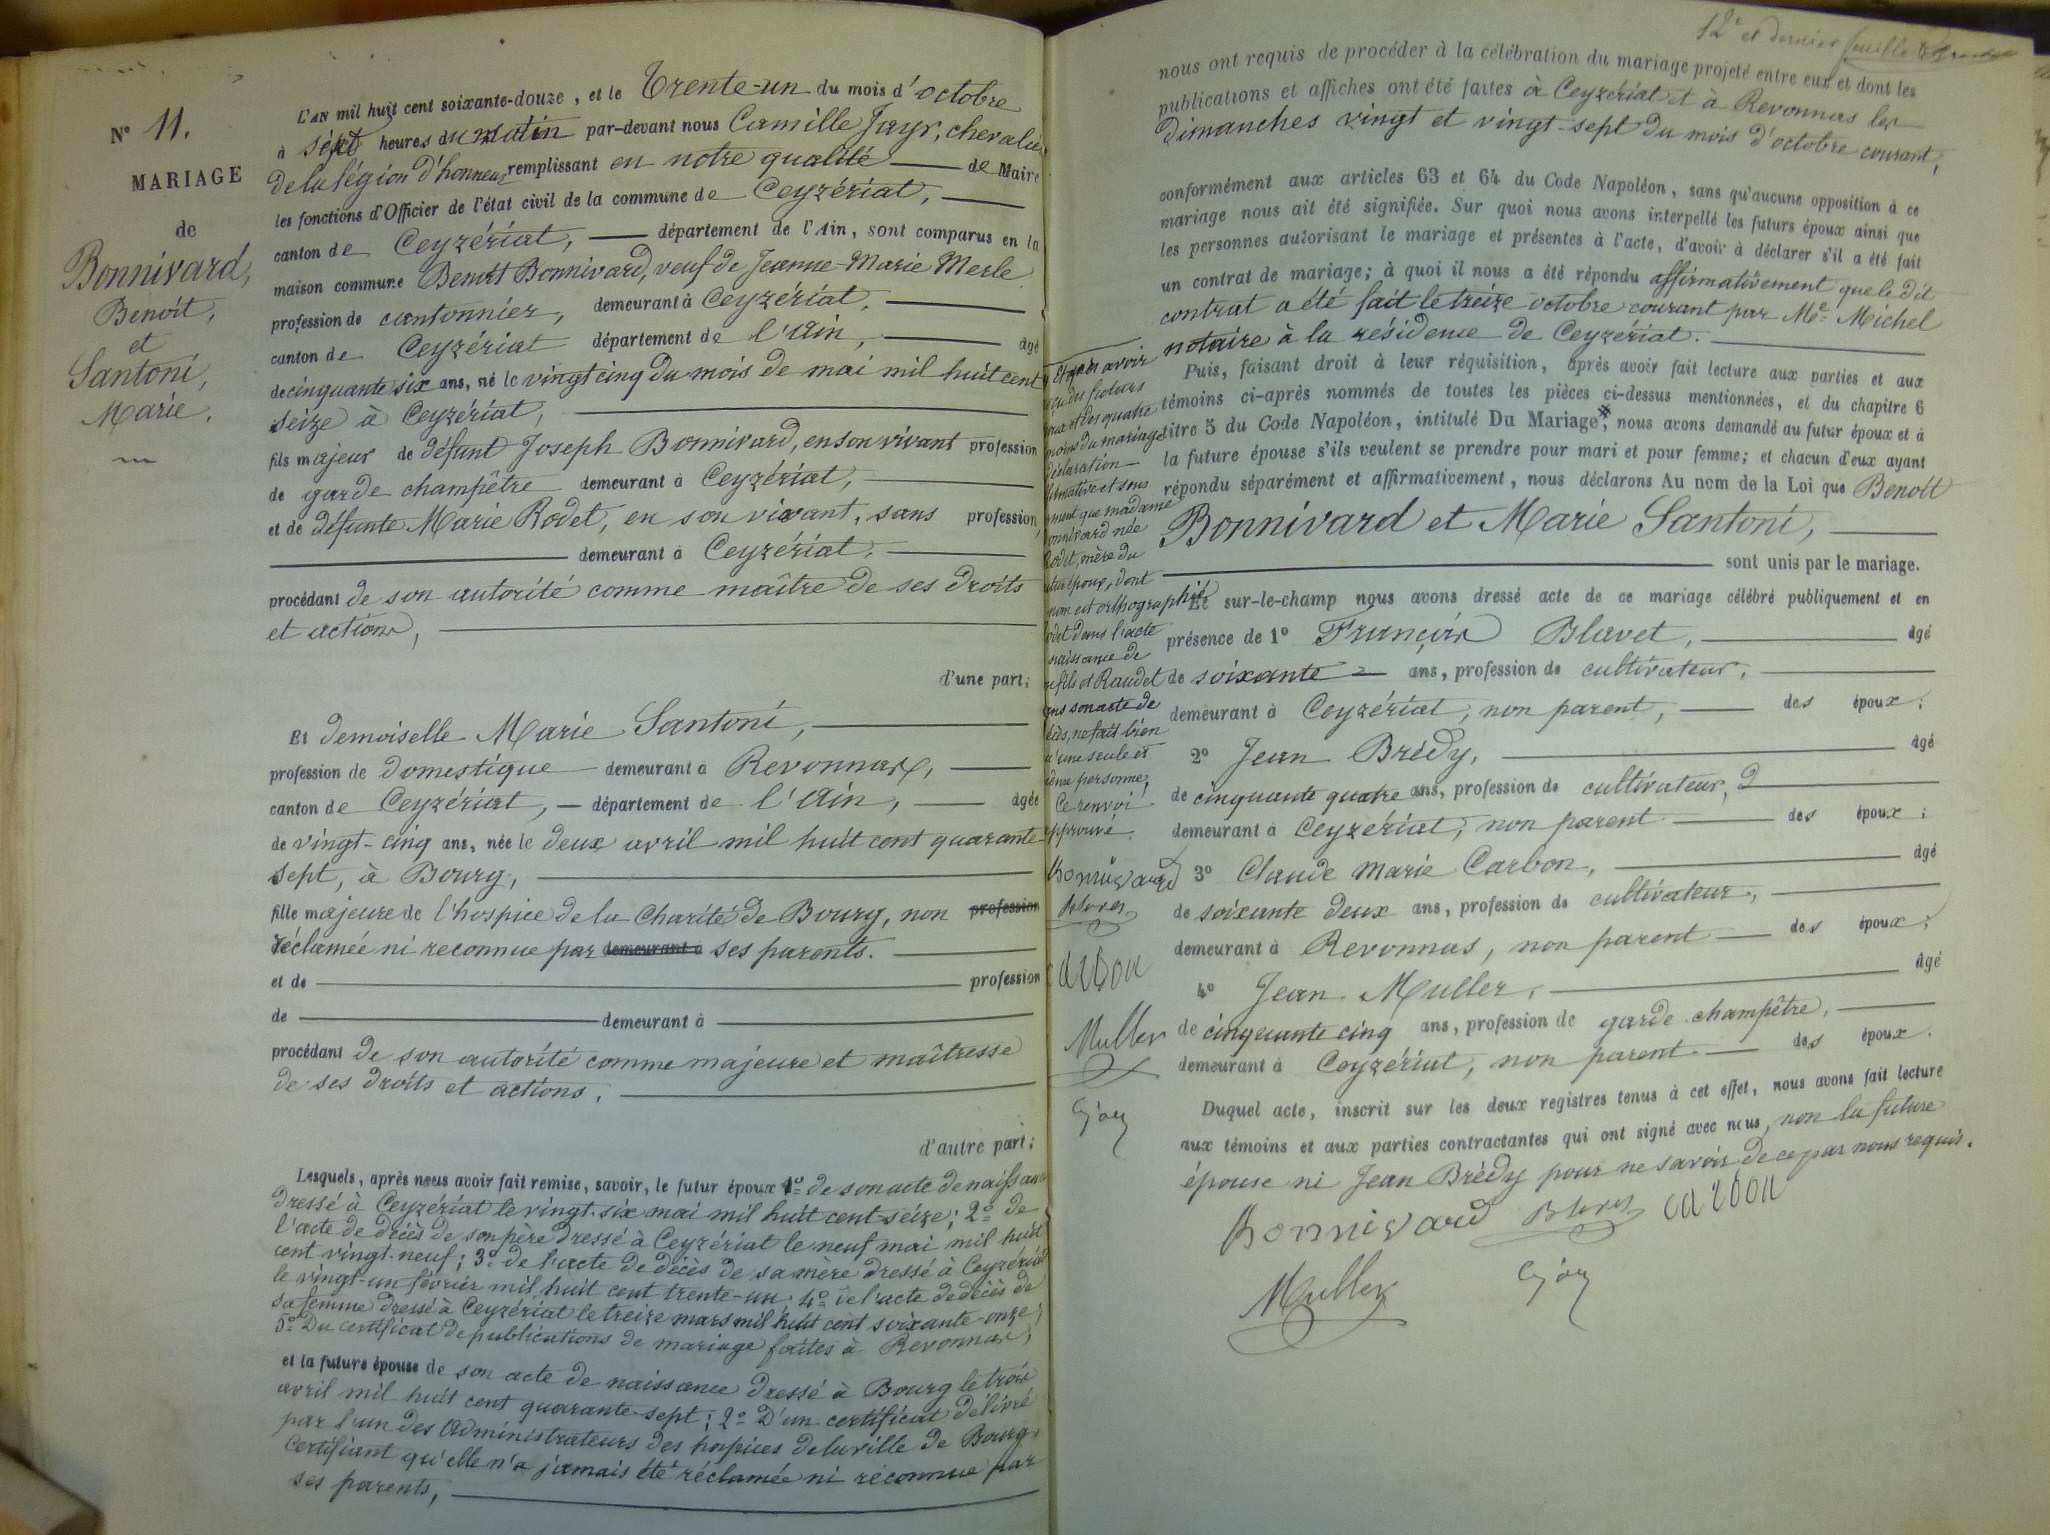 N° 11.
MARIAGE
de
Bonnivard,
Benoit,
et
Santoni,
Marie.
L'AN mil huit cent soixante-douze, et le Trente-un du mois d'octobre
à sept heures du matin par-devant nous Camille Jayr, chevalier
de la légion d'honneur remplissant en notre qualité de Maire
les fonctions d'Officier de l'état civil de la commune de Ceyzériat,
canton de Ceyzériat, département de l'Ain, sont comparus en la
maison commune Benoit Bonnivard, veuf de Jeanne-Marie Merle
profession de cantonnier, demeurant à Ceyzériat,
canton de Ceyzériat département de l'Ain, âgé
de cinquante six ans, né le vingt cinq du mois de mai mil huit cent
seize à Ceyzériat,
fils majeur de défunt Joseph Bonnivard, en son vivant profession
de garde champêtre demeurant à Ceyzériat,
et de défunte Marie Rodet, en son vivant, sans profession
demeurant à Ceyzériat,
procédant de son autorité comme maître de ses droits
et actions,
d'une part;
Et demoiselle Marie Santoni,
profession de domestique demeurant à Revonnas,
canton de Ceyzériat, département de l'Ain, âgée
de vingt-cinq ans, née le deux avril mil huit cent quarante
sept, à Bourg,
fille majeure de l'hospice de la Charité de Bourg, non profession
réclamée ni reconnue par demeurant à ses parents.
et de profession
de demeurant à
procédant de son autorité comme majeure et maîtresse
de ses droits et actions.
d'autre part;
Lesquels, après nous avoir fait remise, savoir, le futur époux 1° de son acte de naissance
dressé à Ceyzériat le vingt-six mai mil huit cent seize; 2° de
l'acte de décès de son père dressé à Ceyzériat le neuf mai mil huit
cent vingt-neuf; 3° de l'acte de décès de sa mère dressé à Ceyzériat
le vingt-un février mil huit cent trente-un 4° de l'acte de décès de
sa femme dressé à Ceyzériat le treize mars mil huit cent soixante-onze;
5° Du certificat de publications de mariage faites à Revonnas,
et la future épouse de son acte de naissance dressé à Bourg le trois
avril mil huit cent quarante-sept; 2° D'un certificat délivré
par l'un des Administrateurs des hospices de la ville de Bourg
certifiant qu'elle n'a jamais été réclamée ni reconnue par
ses parents,
12e et dernier feuille
nous ont requis de procéder à la célébration du mariage projeté entre eux et dont les
publications et affiches ont été faites à Ceyzériat et à Revonnas les
dimanches vingt et vingt-sept du mois d'octobre courant,
conformément aux articles 63 et 64 du Code Napoléon, sans qu'aucune opposition à ce
mariage nous ait été signifiée. Sur quoi nous avons interpellé les futurs époux ainsi que
les personnes autorisant le mariage et présentes à l'acte, d'avoir à déclarer s'il a été fait
un contrat de mariage; à quoi il nous a été répondu affirmativement que le dit
contrat a été fait le treize octobre courant par Me Michel
notaire à la résidence de Ceyzériat.
Puis, faisant droit à leur réquisition, après avoir fait lecture aux parties et aux
témoins ci-après nommés de toutes les pièces ci-dessus mentionnées, et du chapitre 6
titre 5 du Code Napoléon, intitulé Du Mariage, nous avons demandé au futur époux et à
la future épouse s'ils veulent se prendre pour mari et pour femme; et chacun d'eux ayant
répondu séparément et affirmativement, nous déclarons Au nom de la Loi que Benoit
Bonnivard et Marie Santoni,
sont unis par le mariage.
Et sur-le-champ nous avons dressé acte de ce mariage célébré publiquement et en
présence de 1° François Blavet, âgé
de soixante ans, profession de cultivateur,
demeurant à Ceyzériat, non parent, des époux;
2° Jean Brédy, âgé
de cinquante quatre ans, profession de cultivateur,
demeurant à Ceyzériat, non parent des époux;
3° Claude Marie Carbon, âgé
de soixante deux ans, profession de cultivateur,
demeurant à Revonnas, non parent des époux;
4° Jean Muller, âgé
de cinquante cinq ans, profession de garde champêtre,
demeurant à Ceyzériat, non parent des époux.
Duquel acte, inscrit sur les deux registres tenus à cet effet, nous avons fait lecture
aux témoins et aux parties contractantes qui ont signé avec nous, non la future
épouse ni Jean Brédy pour ne savoir de ce par nous requis.
Bonnivard carbon
Muller
et après avoir
des futurs
et des quatre
du mariage
déclaration
et sous
que madame
née
Rodet, mère du
époux, dont
nom est orthographié
dans l'acte
naissance de
fils et Raudet
son acte de
ne fait bien
qu'une seule et
même personne,
Ce renvoi
approuvé.
Bonnivard
carbon
Muller